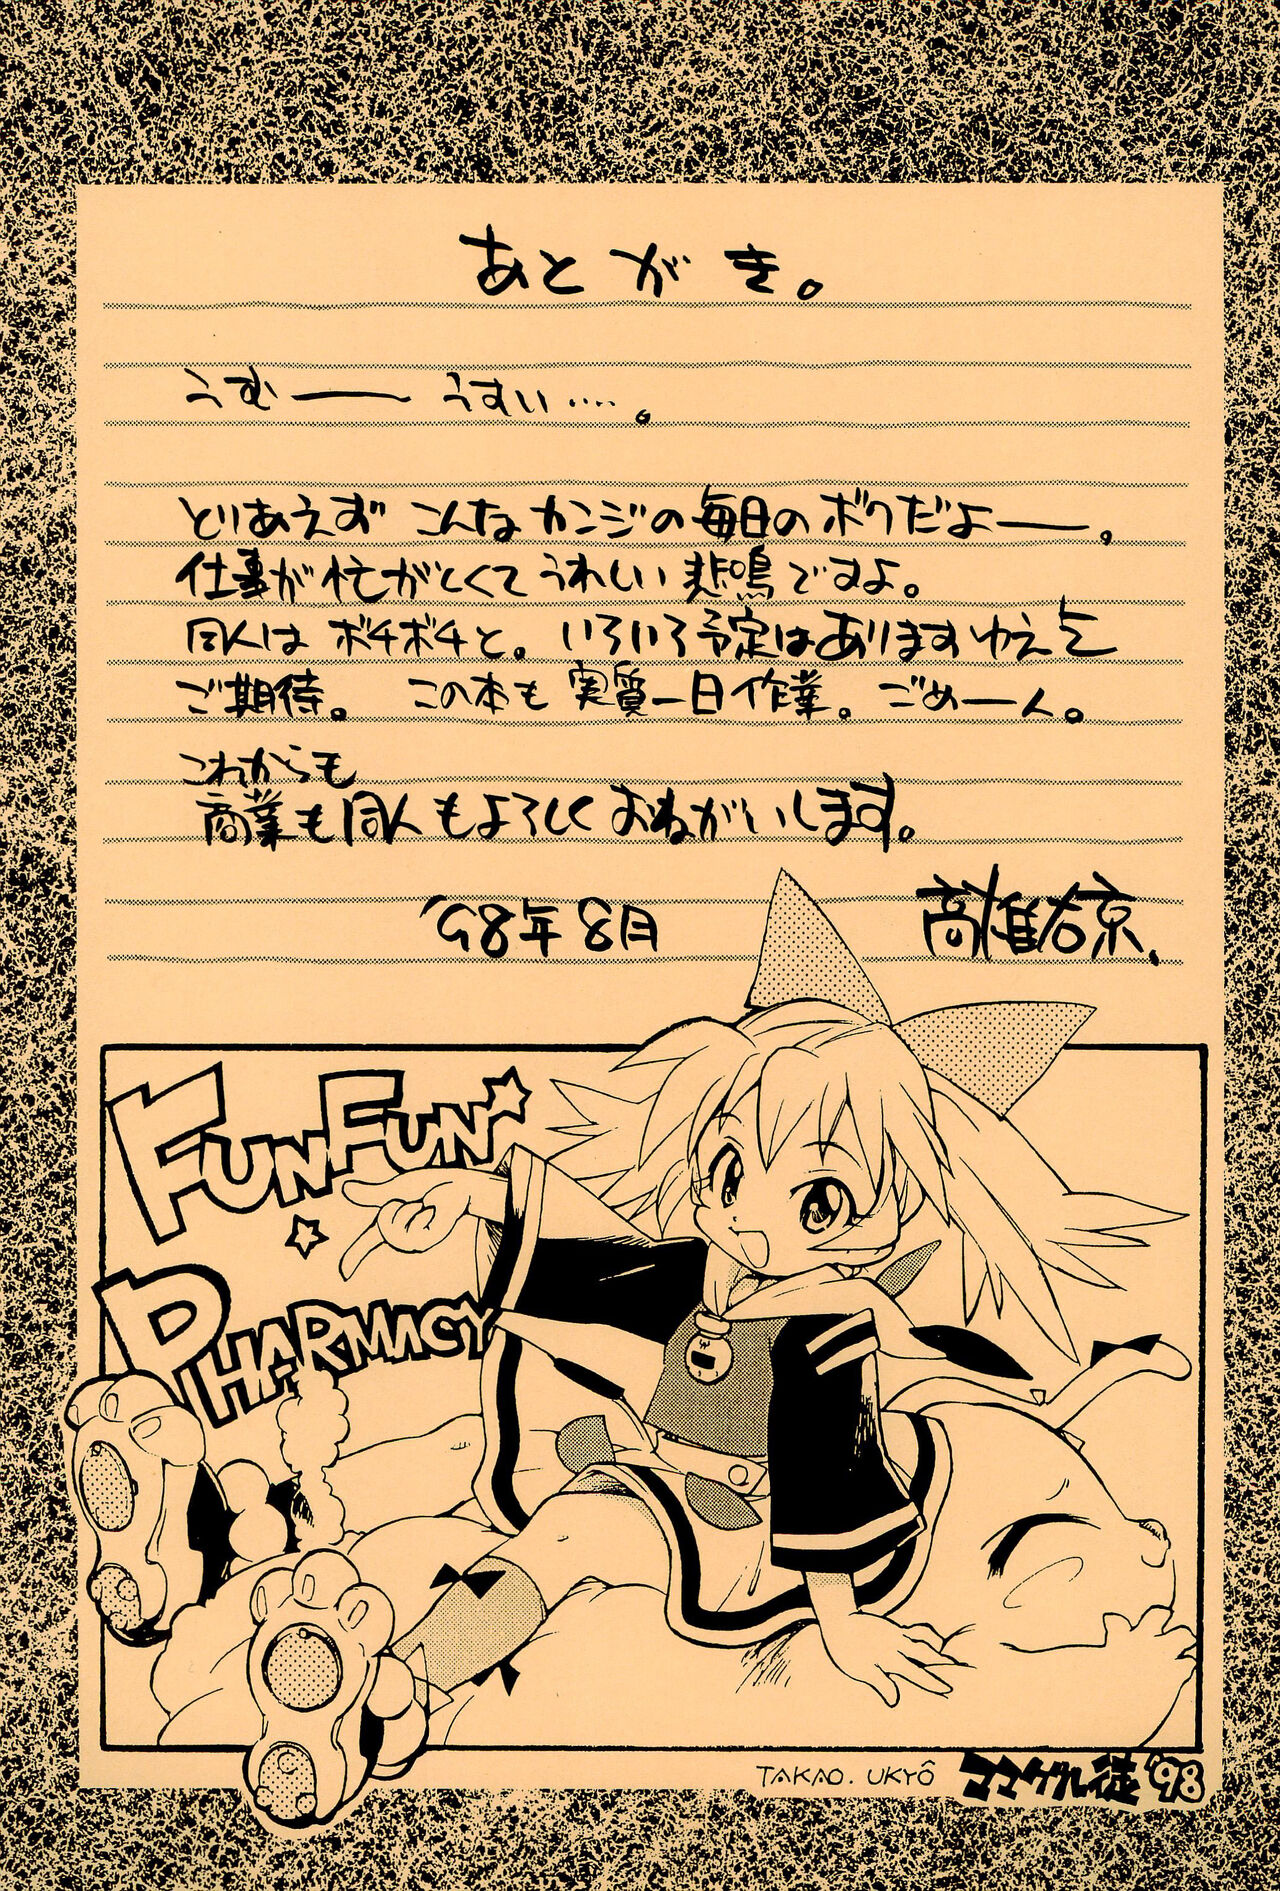 あとがき。
うむーー うすい‥‥。
とりあえず こんなカンジの毎日のボクだよーー。
仕事が忙がしくて うれしい悲鳴ですよ。
同人は ボチボチと。いろいろ予定はありますゆえ
ご期待。 この本も 実質一日作業。ごめーん。
これからも
商業も同人もよろしくおねがいします。
'98年8月 高雄右京
FUN FUN
PHARMACY
TAKAO. UKYÔ ママゲル徒 '98